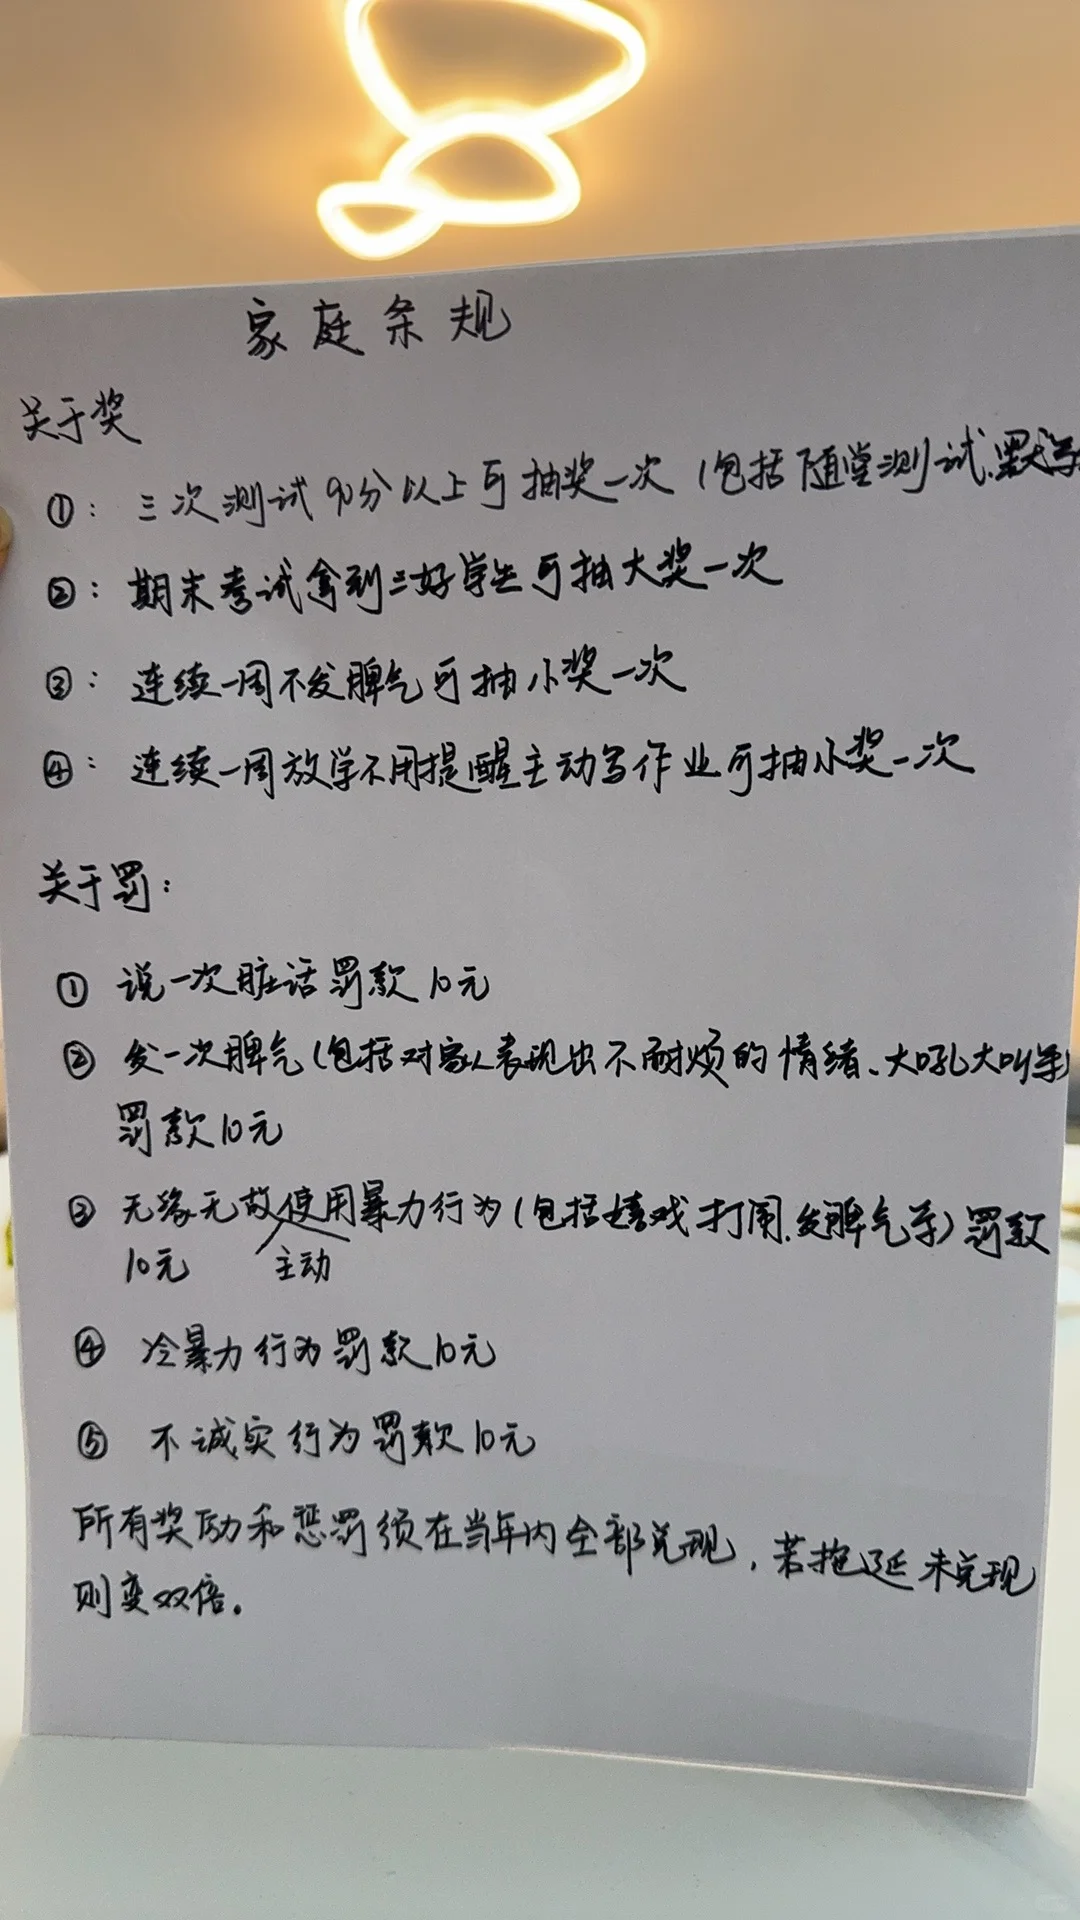 家庭条规
关于奖
①：三次测试90分以上可抽奖一次（包括随堂测试、默写
②：期末考试拿到三好学生可抽大奖一次
③：连续一周不发脾气可抽小奖一次
④：连续一周放学不用提醒主动写作业可抽小奖一次
关于罚：
① 说一次脏话罚款10元
② 发一次脾气（包括对家人表现出不耐烦的情绪、大吼大叫等
罚款10元
③ 无缘无故使用暴力行为（包括嬉戏打闹、发脾气等）罚款
10元 主动
④ 冷暴力行为罚款10元
⑤ 不诚实行为罚款10元
所有奖励和惩罚须在当年内全部兑现，若拖延未兑现
则变双倍。